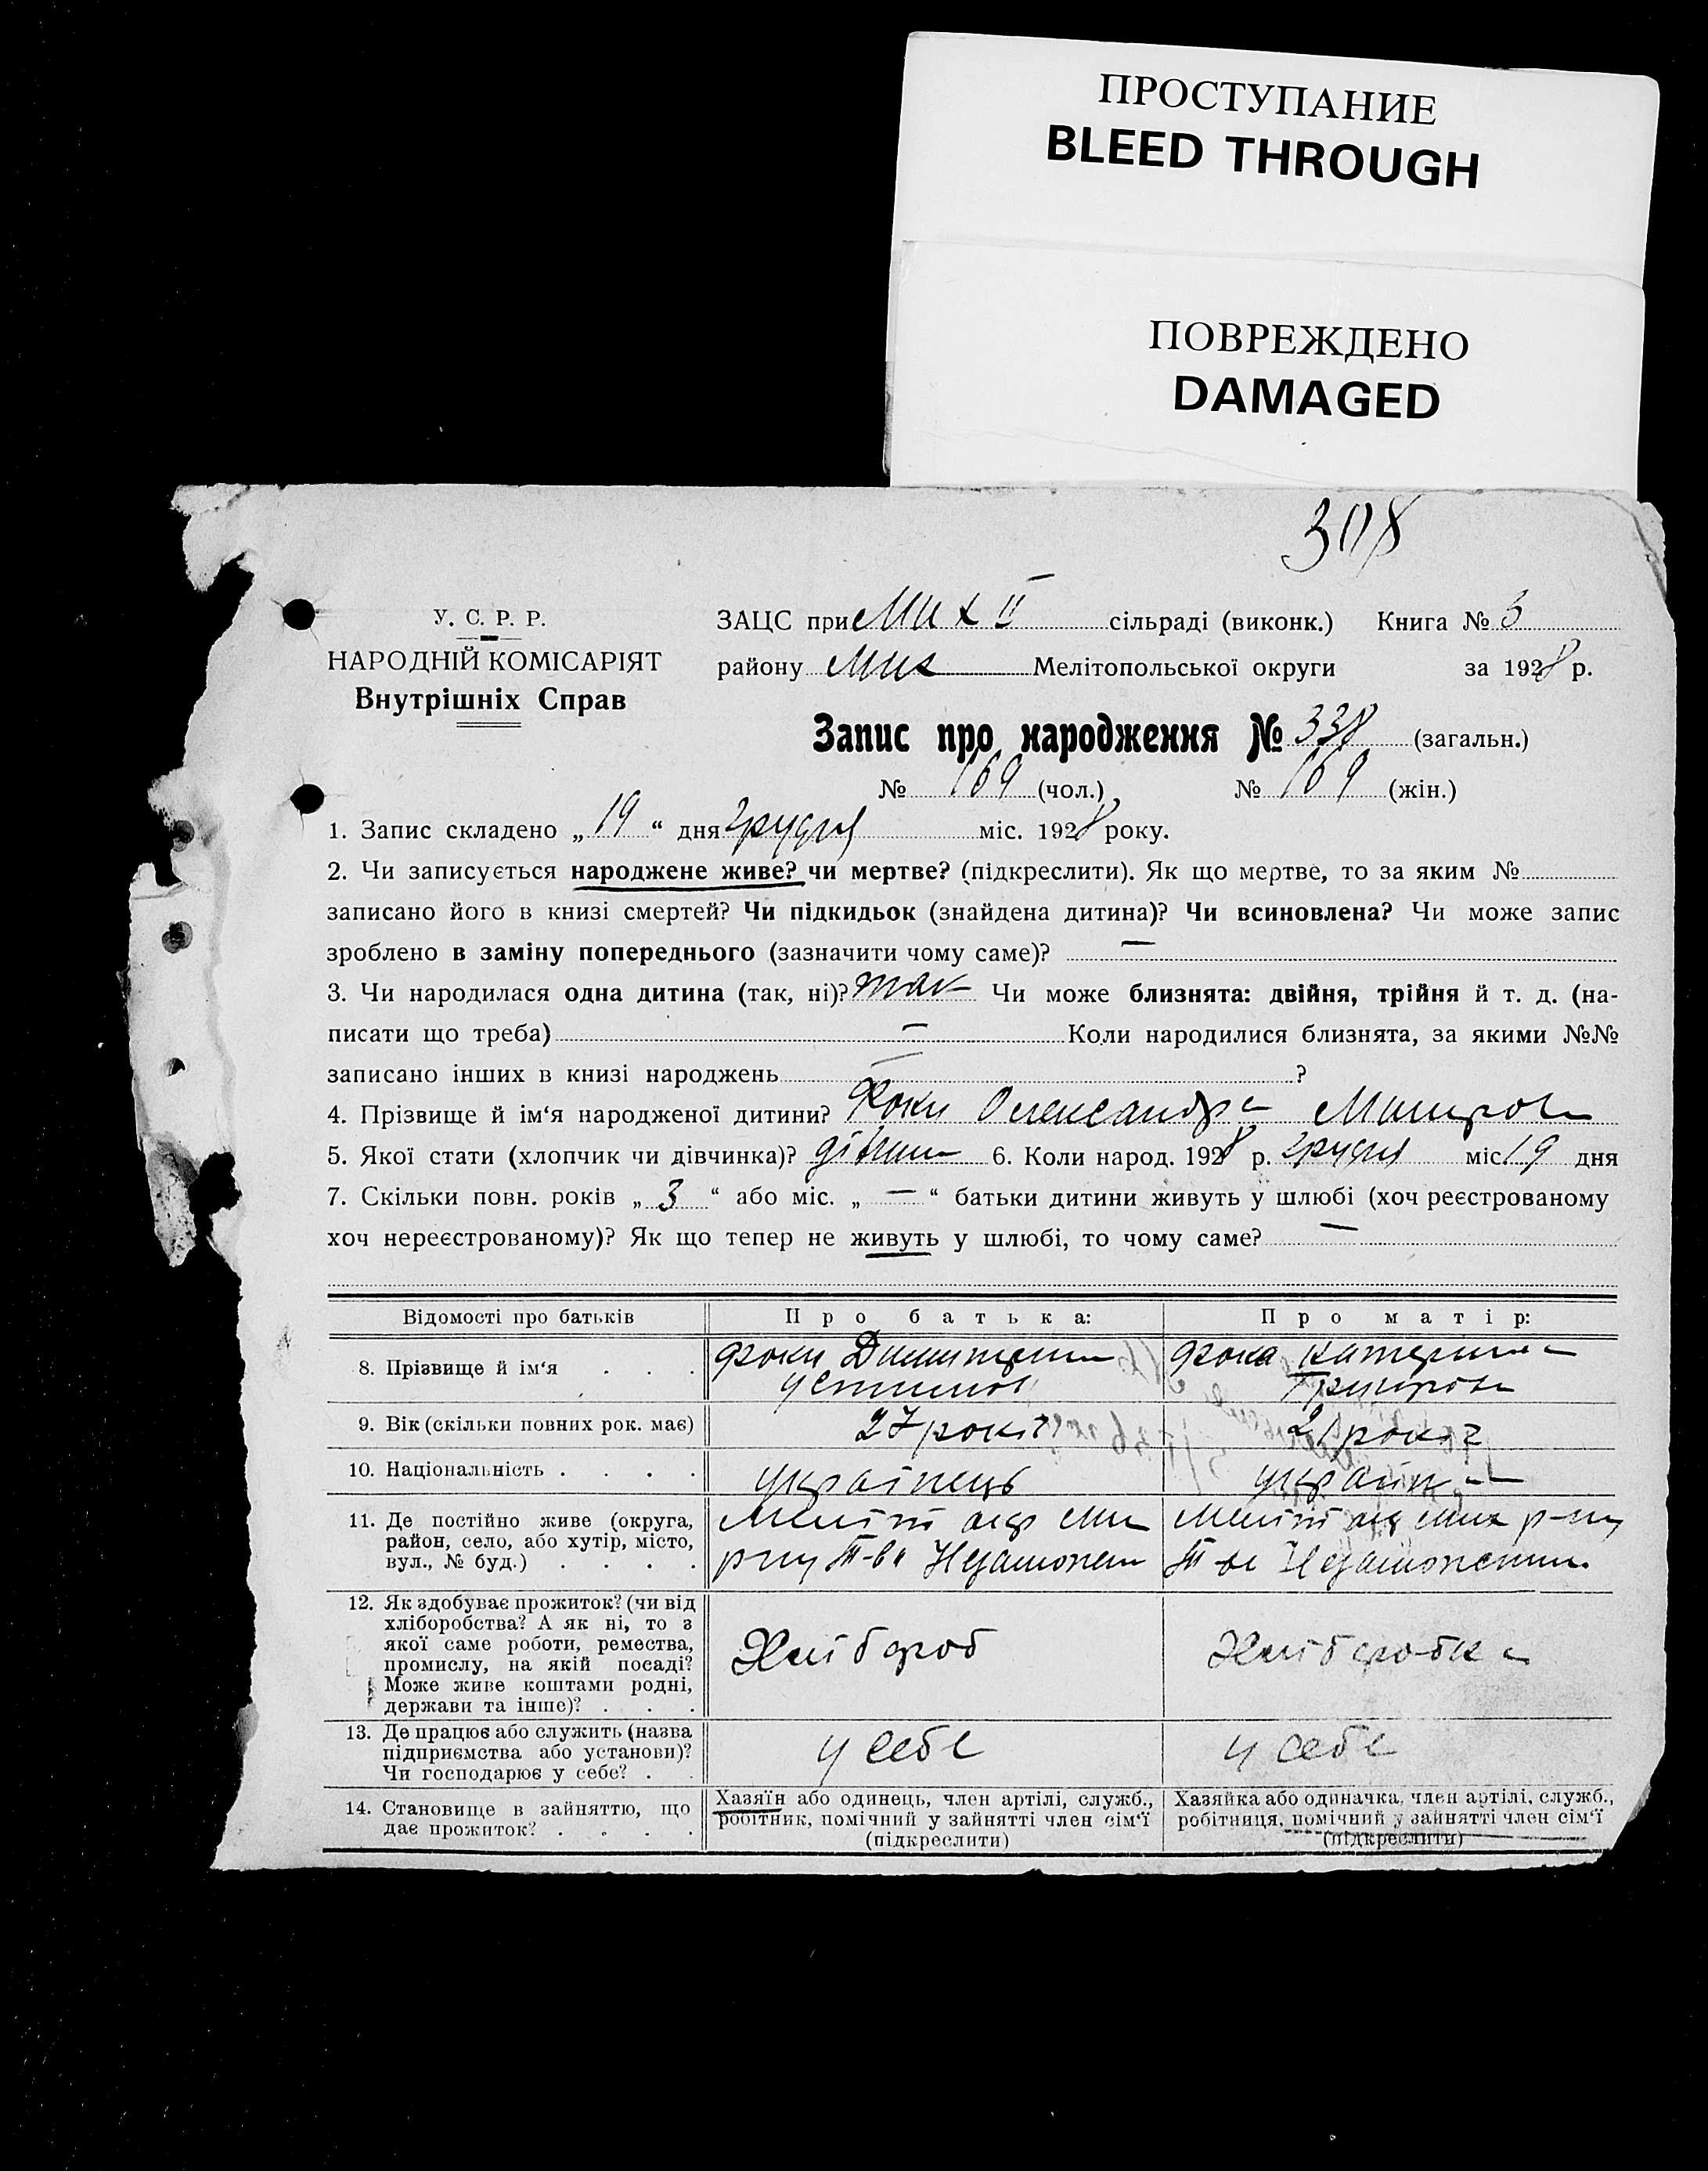 ПРОСТУПАНИЕ
BLEED THROUGH
ПОВРЕЖДЕНО
DAMAGED
308
У. С. Р. Р.
НАРОДНІЙ КОМІСАРІЯТ
Внутрішніх Справ
ЗАЦС при Мих II сільраді (виконк.) Книга № 3
району Мих Мелітопольської округи за 1928 р.
Запис про народження № 338 (загальн.)
№ 169 (чол.) № 169 (жін.)
1. Запис складено „ 19 “ дня грудня міс. 1928 року.
2. Чи записується народжене живе? чи мертве? (підкреслити). Як що мертве, то за яким №
записано його в книзі смертей? Чи підкидьок (знайдена дитина)? Чи всиновлена? Чи може запис
зроблено в заміну попереднього (зазначити чому саме)? —
3. Чи народилася одна дитина (так, ні)? так Чи може близнята: двійня, трійня й т. д. (на-
писати що треба) — Коли народилися близнята, за якими №№
записано інших в книзі народжень — ?
4. Прізвище й ім‘я народженої дитини? Фоки Олександра
5. Якої стати (хлопчик чи дівчинка)? дівчин 6. Коли народ. 1928 р. грудня міс. 19 дня
7. Скільки повн. років „ 3 “ або міс. „ — “ батьки дитини живуть у шлюбі (хоч реєстрованому
хоч нереєстрованому)? Як що тепер не живуть у шлюбі, то чому саме? —
Відомості про батьків
Про батька:
Про матір:
8. Прізвище й ім‘я . . .
Фоки
Устимов
Фока Катерина
9. Вік (скільки повних рок. має)
27 років
21 років
10. Національність . . . .
українець
україн
11. Де постійно живе (округа,
район, село, або хутір, місто,
вул., № буд.) . . . .
Меліт окр Мих
р-ну Т-во Незаможн
Меліт окр Мих р-ну
Т-во Незаможник
12. Як здобуває прожиток? (чи від
хліборобства? А як ні, то з
якої саме роботи, ремества,
промислу, на якій посаді?
Може живе коштами родні,
держави та інше)? . . .
Хлібороб
Хліборобка
13. Де працює або служить (назва
підприємства або установи)?
Чи господарює у себе? . .
у себе
у себе
14. Становище в зайняттю, що
дає прожиток? . . . .
Хазяїн або одинець, член артілі, служб.,
робітник, помічний у зайнятті член сім‘ї
(підкреслити)
Хазяйка або одиначка, член артілі, служб.,
робітниця, помічний у зайнятті член сім‘ї
(підкреслити)